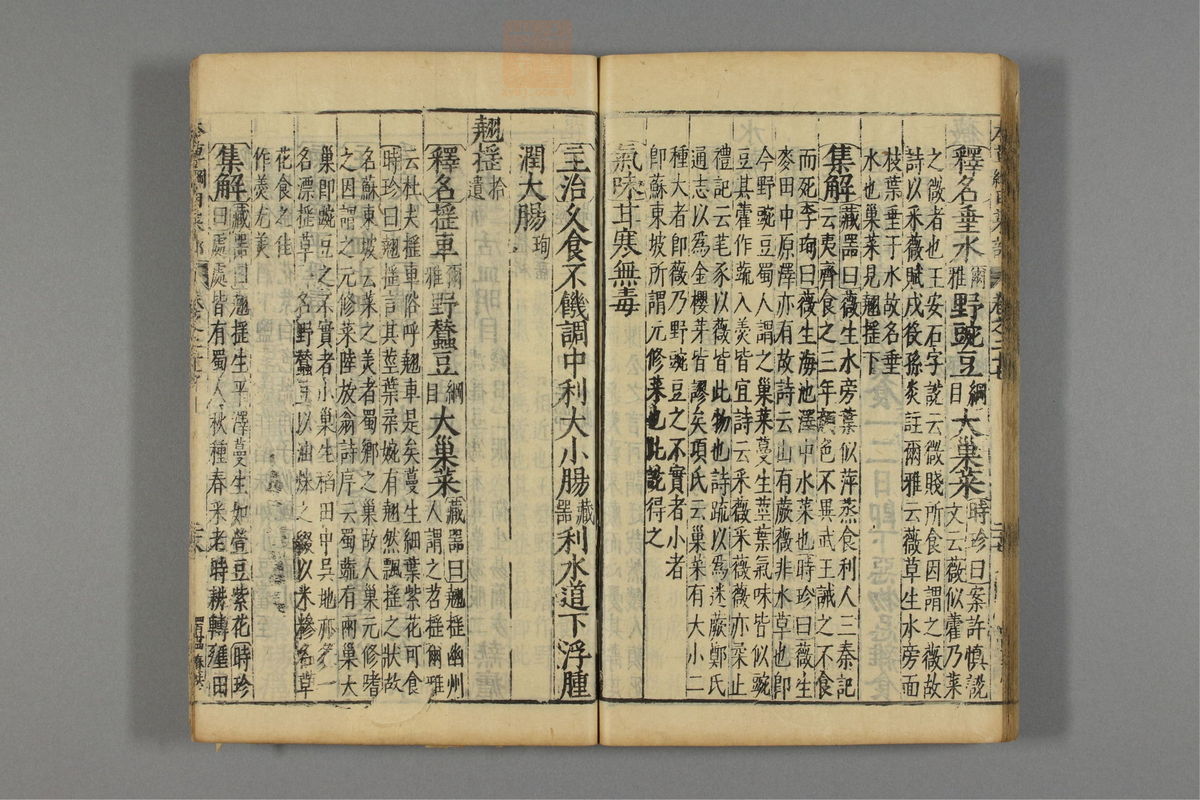 釋名垂水爾雅野豌豆綱目大巢菜時珍曰案許慎說
文云薇似藿乃菜
之微者也王安石字說云微賤所食因謂之薇故
詩以采薇賦戍役孫炎註爾雅云薇草生水旁而
枝葉垂于水故名垂
水也巢菜見翹摇下
集解藏器曰薇生水旁葉似萍蒸食利人三秦記
云夷齊食之三年顏色不異武王誡之不食
而死李珣曰薇生海池澤中水菜也時珍曰薇生
麥田中原澤亦有故詩云山有蕨薇非水草也卽
今野豌豆蜀人謂之巢菜蔓生莖葉氣味皆似豌
豆其藿作蔬入羹皆宜詩云采薇采薇薇亦柔止
禮記云芼豕以薇皆此物也詩疏以爲迷蕨鄭氏
通志以爲金櫻芽皆謬矣項氏云巢菜有大小二
種大者卽薇乃野豌豆之不實者小者
卽蘇東坡所謂元修菜也此說得之
氣味甘寒無毒
主治久食不饑調中利大小腸藏器利水道下浮腫
潤大腸珣
翹摇拾遺
釋名摇車爾雅野蠶豆綱目大巢菜藏器曰翹摇幽州
人謂之苕摇爾雅
云杜夫摇車俗呼翹車是矣蔓生細葉紫花可食
時珍曰翹摇言其莖葉柔婉有翹然飄摇之狀故
名蘇東坡云菜之美者蜀鄉之巢故人巢元修嗜
之因謂之元修菜陸放翁詩序云蜀蔬有兩巢大
巢卽豌豆之不實者小巢生稻田中吳地亦多一
名漂摇草一名野蠶豆以油煠之綴以米糝名草
花食之佳
作羹尤美
集解藏器曰翹摇生平澤蔓生如䝁豆紫花時珍
曰處處皆有蜀人秋種春采老時耕轉壅田